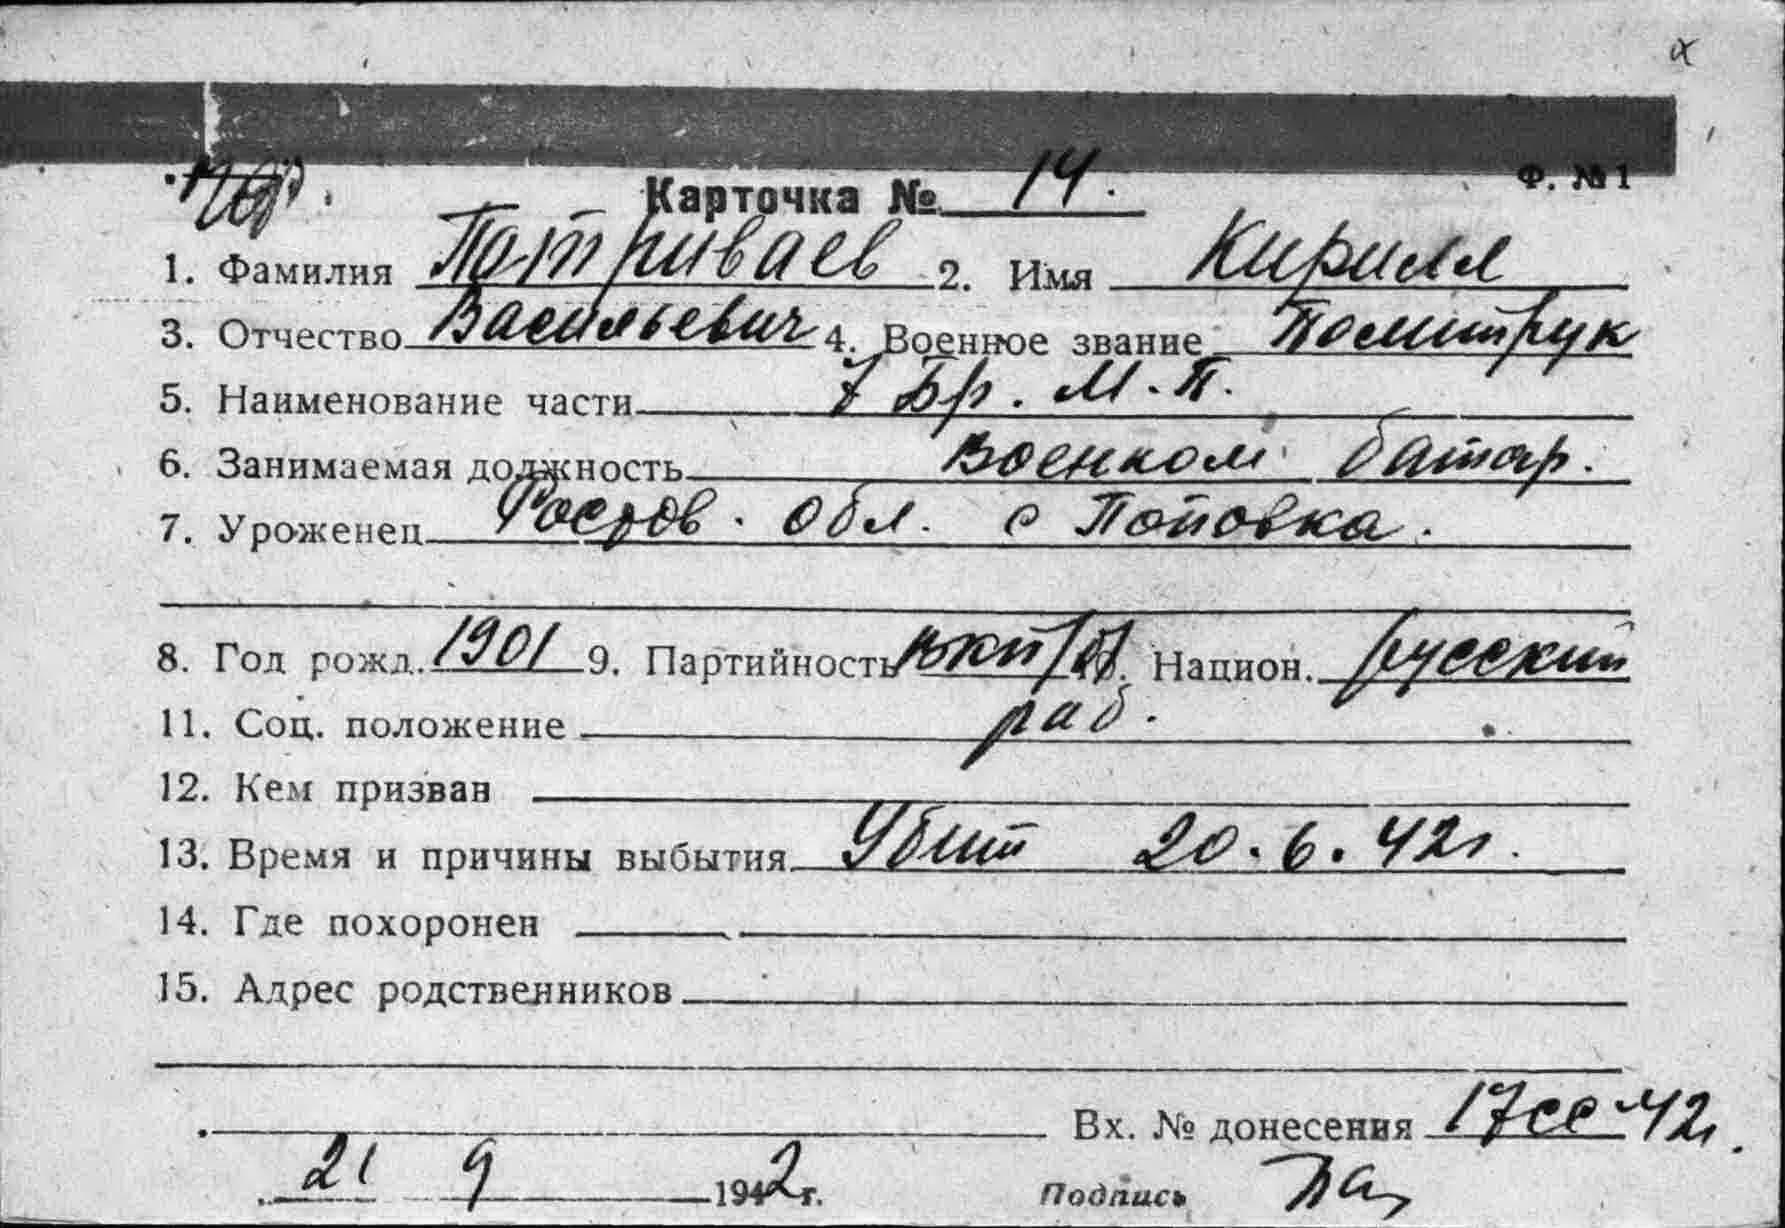 Ф. №1
Карточка № 14.
1. Фамилия Потриваев 2. Имя Кирилл
3. Отчество Васильевич 4. Военное звание Политрук
5. Наименование части 7 Бр. М.П.
6. Занимаемая должность Военком батар.
7. Уроженец Ростов. обл. с Поповка.
8. Год рожд. 1901 9. Партийность ВКП/б/. Национ. русский
11. Соц. положение раб.
12. Кем призван
13. Время и причины выбытия Убит 20.6.42г.
14. Где похоронен
15. Адрес родственников
Вх. № донесения 17сс-42г.
21 9 1942г. Подпись